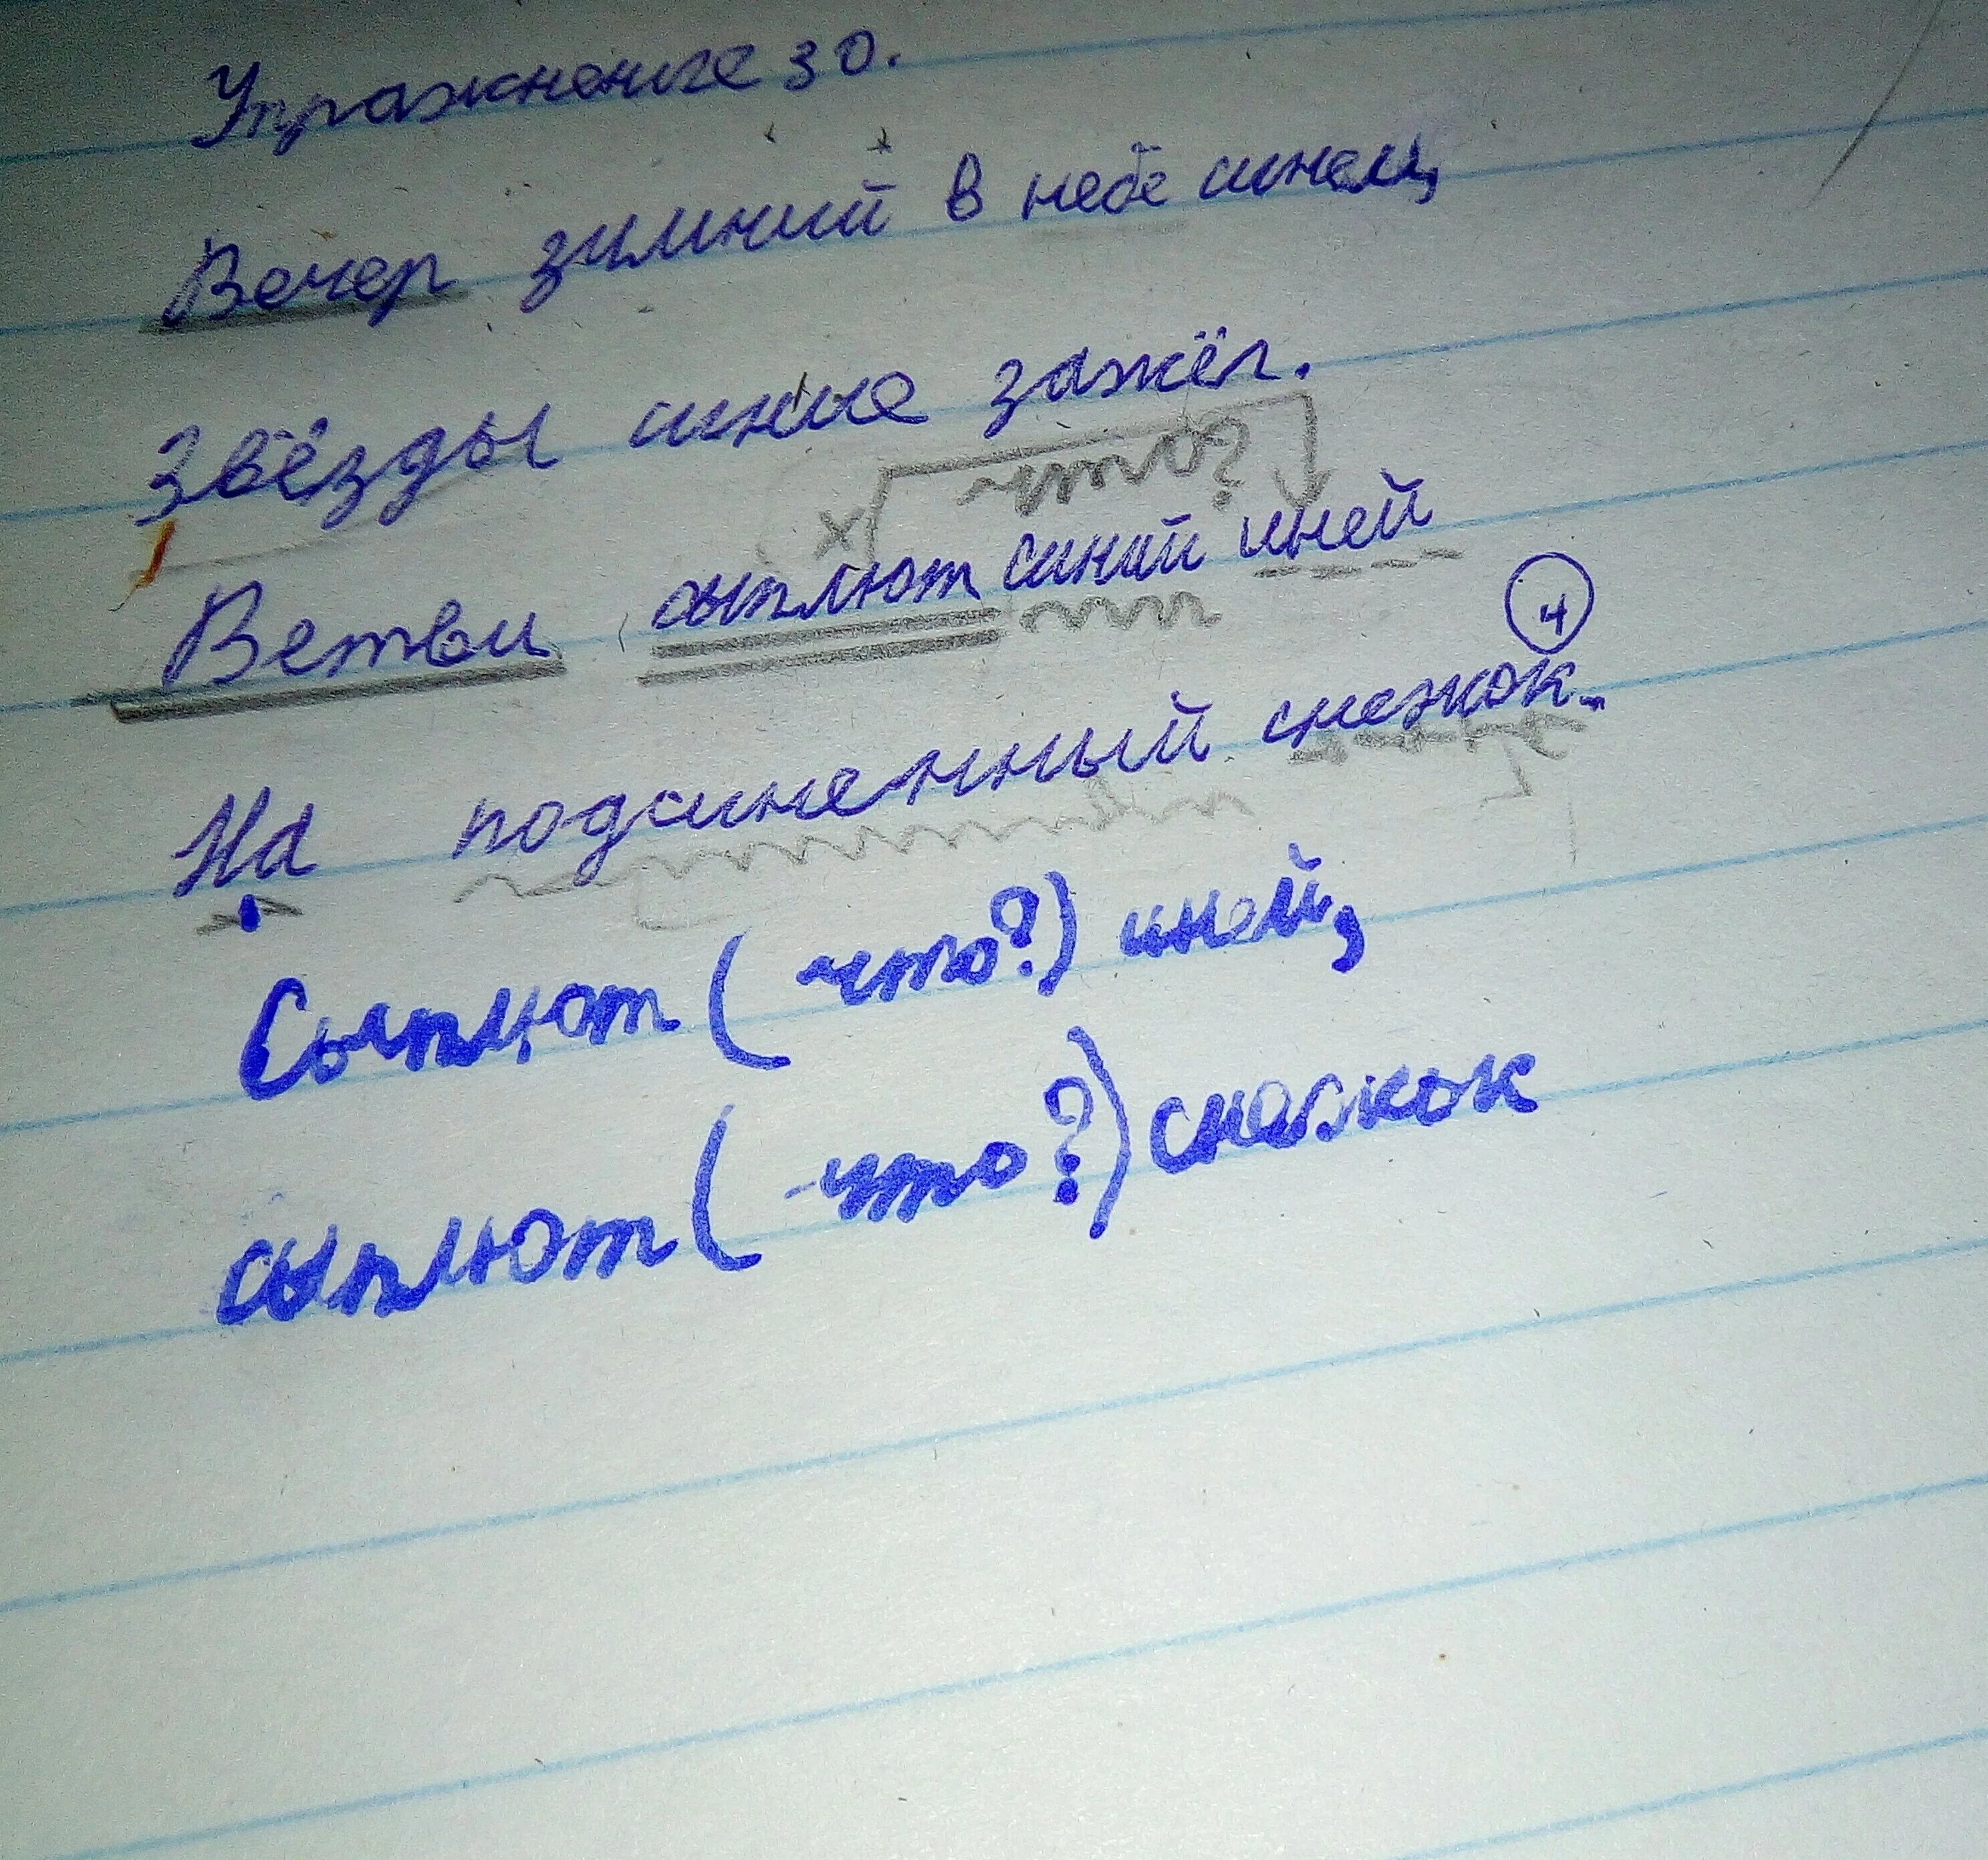 Упражнение 30.
Вечер зимний в небе синем,
Звёзды синие зажёг.
что?
х
Ветви сыплют синий иней
4
На подсиненный снежок.
Сыплют (что?) иней,
сыплют (что?) снежок